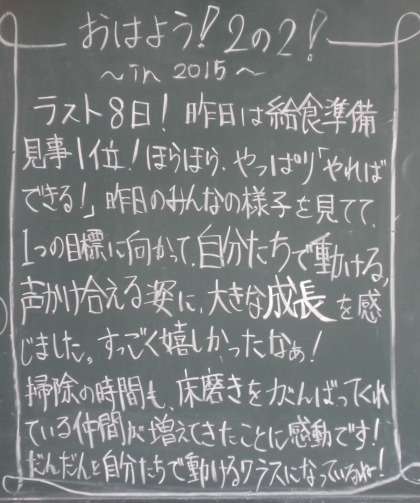 おはよう!2の2!
〜in 2015〜
ラスト8日!昨日は給食準備
見事1位!ほらほら、やっぱり「やれば
できる!」昨日のみんなの様子を見てて、
1つの目標に向かって、自分たちで動ける、
声かけ合える姿に、大きな成長を感
じました。すっごく嬉しかったなぁ!
掃除の時間も、床磨きをがんばってくれ
ている仲間が増えてきたことに感動です!
だんだんと自分たちで動けるクラスになっているね!